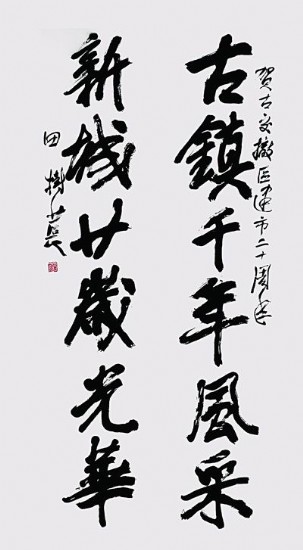 賀古交撤區建市二十周年
古鎮千年風采
新城廿歲光華
田樹